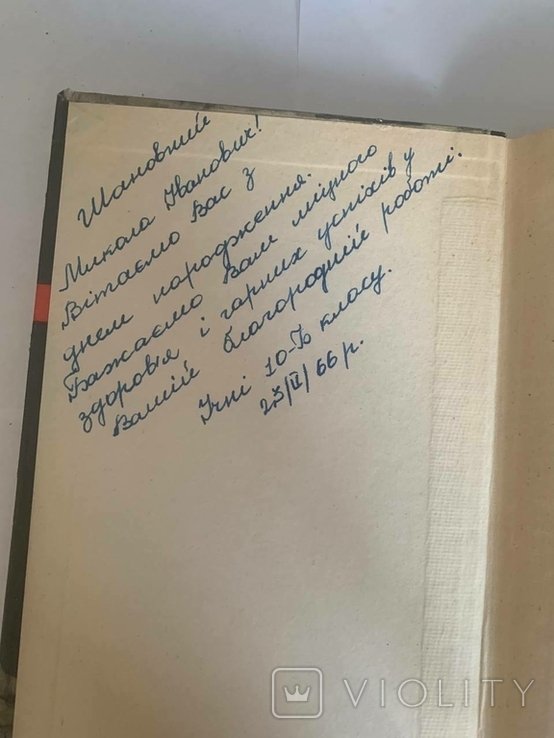 Шановний
Микола Іванович!
Вітаємо Вас з
днем народження.
Бажаємо Вам міцного
здоров'я і гарних успіхів у
Вашій благородній роботі.
Учні 10-Б класу.
23/ІІ/66 р.
VIOLITY